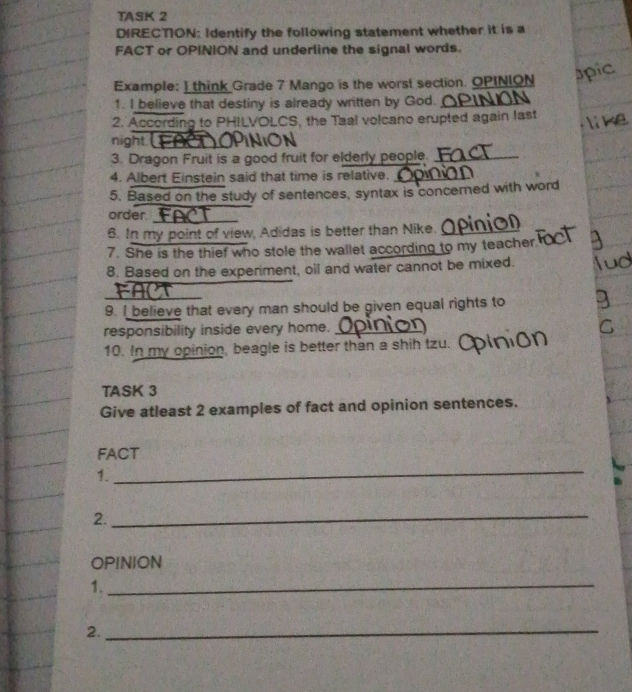 TASK 2
DIRECTION: Identify the following statement whether it is a
FACT or OPINION and underline the signal words.
Example: I think Grade 7 Mango is the worst section. OPINION
1. I believe that destiny is already written by God. OPINION
2. According to PHILVOLCS, the Taal volcano erupted again last
night. (FACT) OPINION
3. Dragon Fruit is a good fruit for elderly people. FACT
4. Albert Einstein said that time is relative. Opinion
5. Based on the study of sentences, syntax is concerned with word
order. FACT
6. In my point of view, Adidas is better than Nike. Opinion
7. She is the thief who stole the wallet according to my teacher. FacT
8. Based on the experiment, oil and water cannot be mixed.
FACT
9. I believe that every man should be given equal rights to
responsibility inside every home. Opinion
10. In my opinion, beagle is better than a shih tzu. Opinion
TASK 3
Give atleast 2 examples of fact and opinion sentences.
FACT
1.
2.
OPINION
1.
2.
opic
like
g
lud
g
c